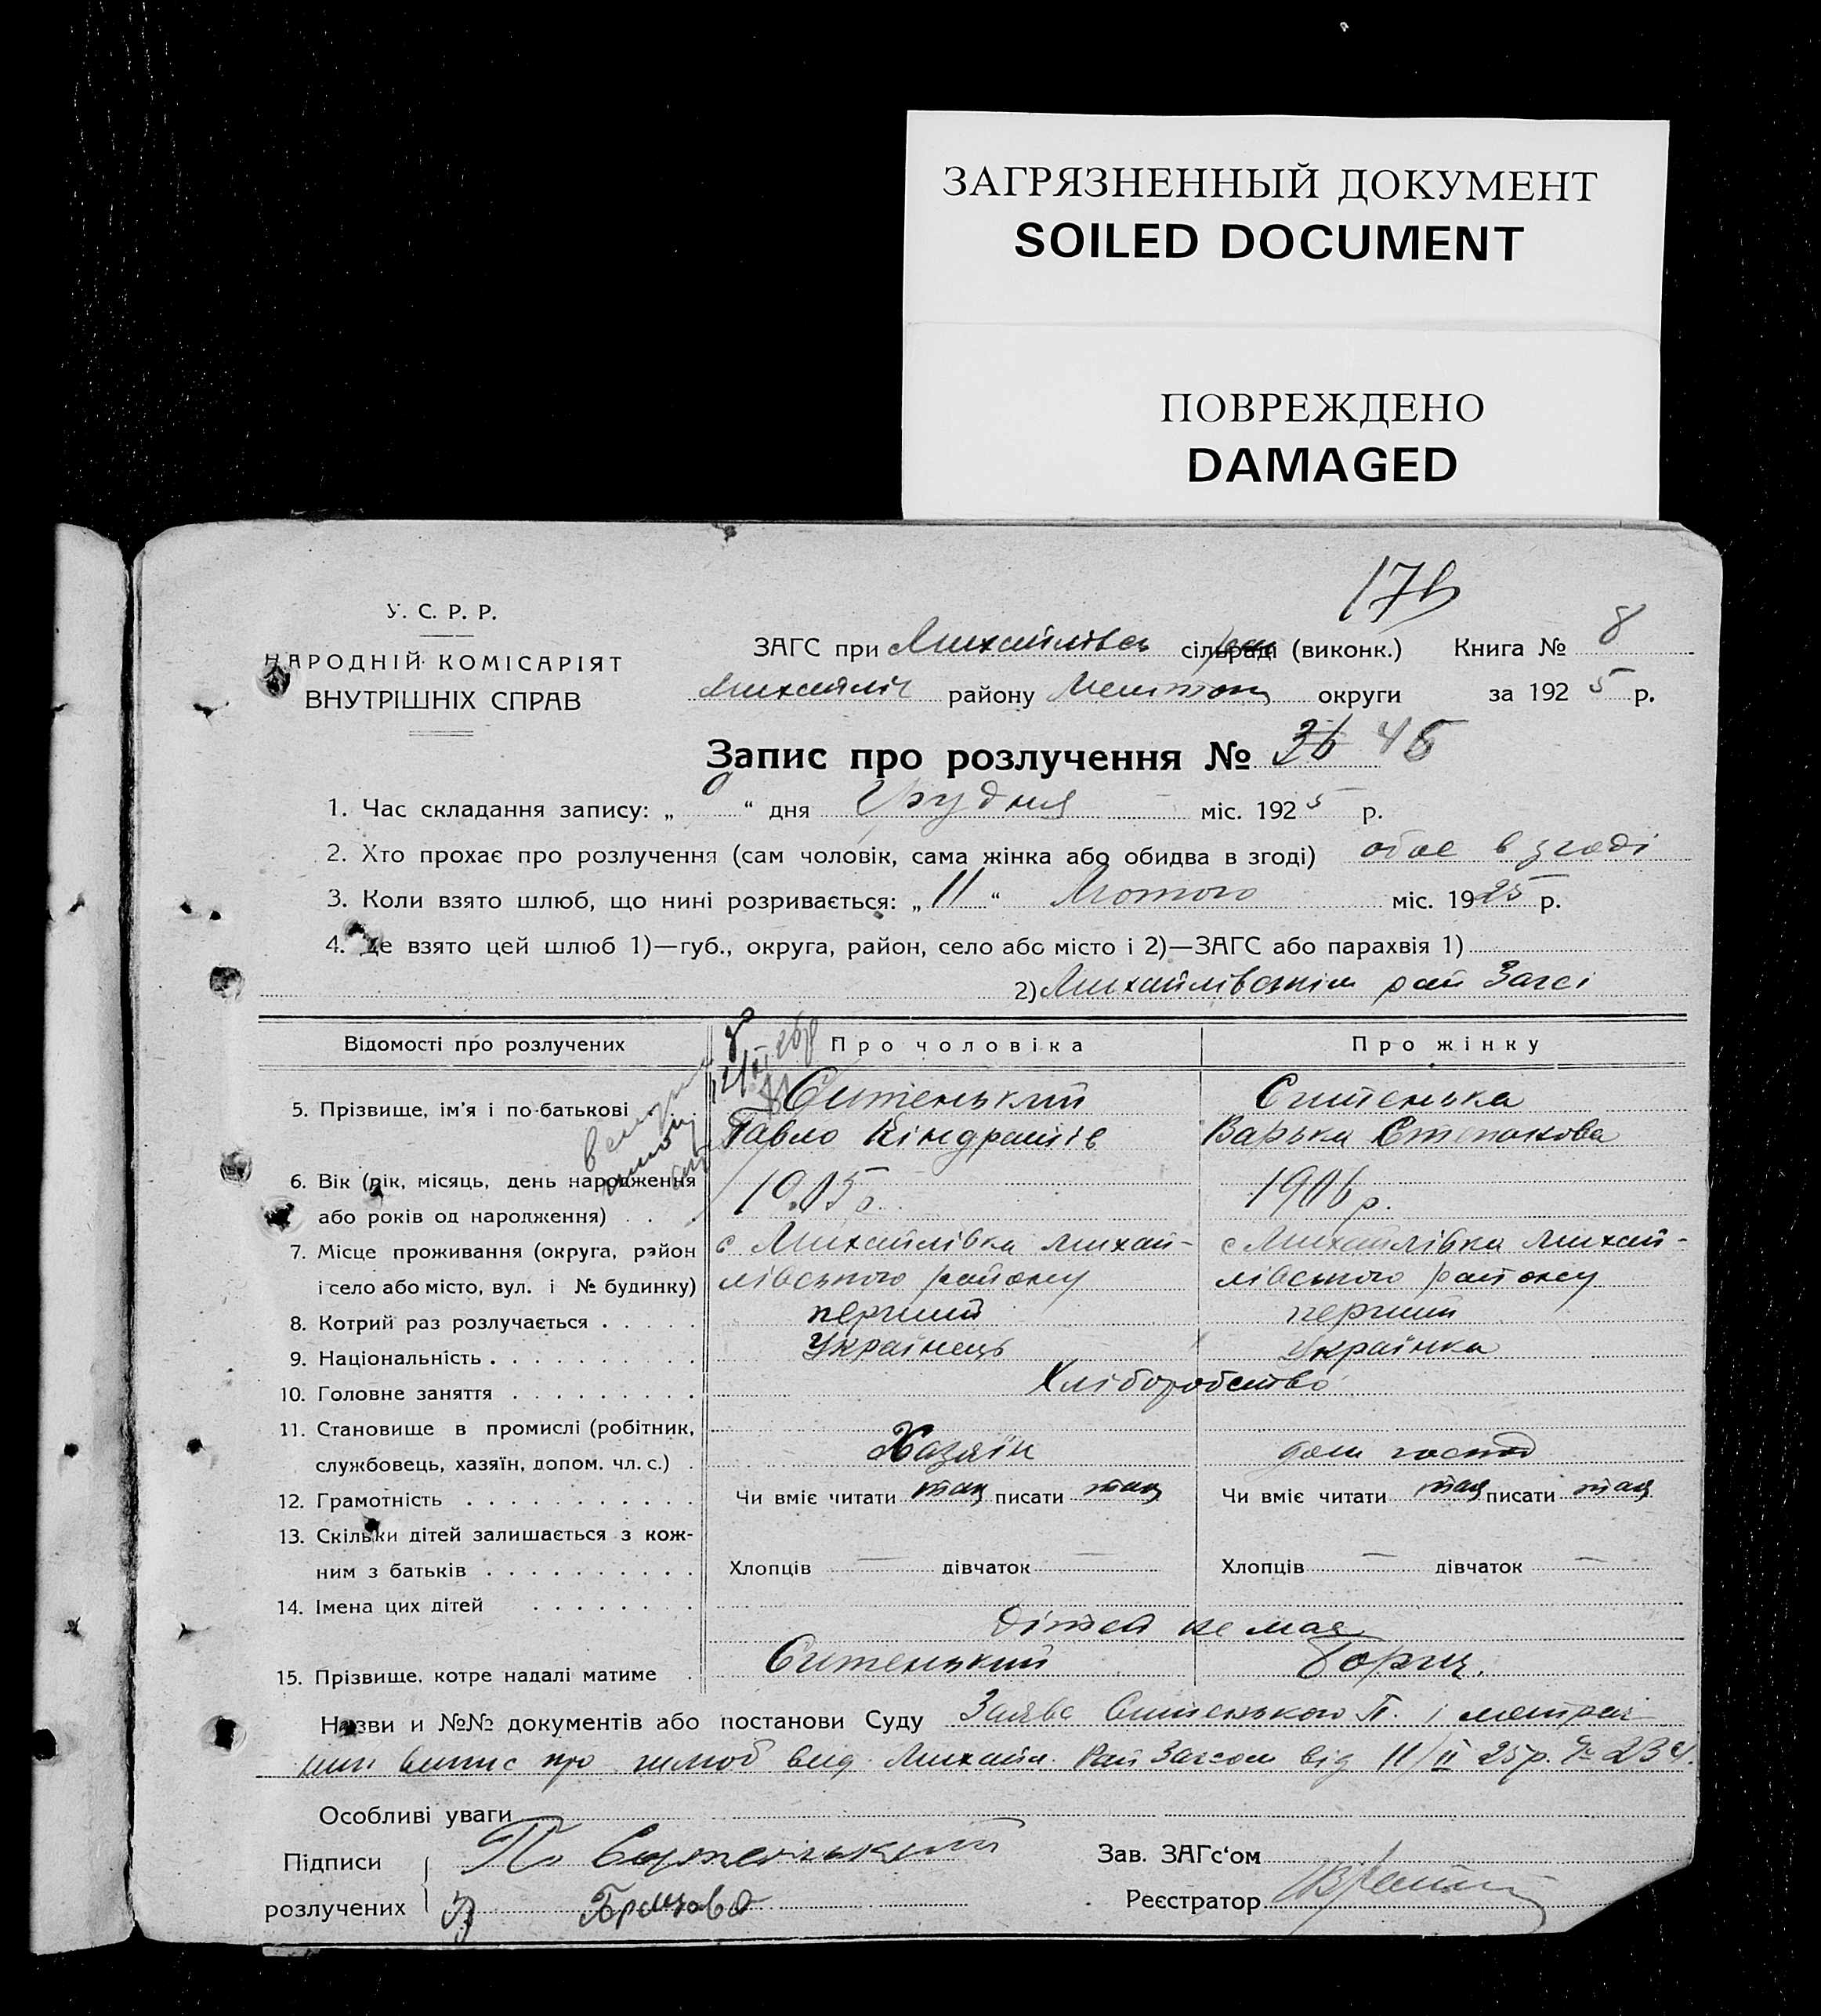 ЗАГРЯЗНЕННЫЙ ДОКУМЕНТ
SOILED DOCUMENT
ПОВРЕЖДЕНО
DAMAGED
У. С. Р. Р.
НАРОДНІЙ КОМІСАРІЯТ
ВНУТРІШНІХ СПРАВ
ЗАГС при Михайлівськ сільраді (виконк.) Книга № 8
Михайлів району округи за 1925 р.
Запис про розлучення № 36 46
1. Час складання запису: „ 9 “ дня Грудня міс. 1925 р.
2. Хто прохає про розлучення (сам чоловік, сама жінка або обидва в згоді) обоє в згоді
3. Коли взято шлюб, що нині розривається: „ 11 “ Лютого міс. 1925 р.
4. Де взято цей шлюб 1)—губ., округа, район, село або місто і 2)—ЗАГС або парахвія 1)
2) Михайлівськім рай Загсі
Відомості про розлучених Про чоловіка Про жінку
5. Прізвище, ім'я і по-батькові Ситенький Ситенька
Павло Кіндратів Варька Степанова
6. Вік (рік, місяць, день народження
або років од народження) 1905 р. 1906 р.
7. Місце проживання (округа, район с Михайлівка Михай- с Михайлівка Михай-
і село або місто, вул. і № будинку) лівського району лівського району
8. Котрий раз розлучається перший перший
9. Національність Українець Українка
10. Головне заняття Хліборобство
11. Становище в промислі (робітник,
службовець, хазяїн, допом. чл. с.) Хазяїн дом господ
12. Грамотність Чи вміє читати так писати так Чи вміє читати так писати так
13. Скільки дітей залишається з кож-
ним з батьків Хлопців — дівчаток — Хлопців — дівчаток —
14. Імена цих дітей
Дітей не має
15. Прізвище, котре надалі матиме Ситенький
Назви и №№ документів або постанови Суду Заява Ситенького П. і метрич
ний випис про шлюб вид. Михайл. Рай Загсом від 11/II 25 р. № 234.
Особливі уваги
Підписи П. Ситенький Зав. ЗАГс‘ом
розлучених Реєстратор